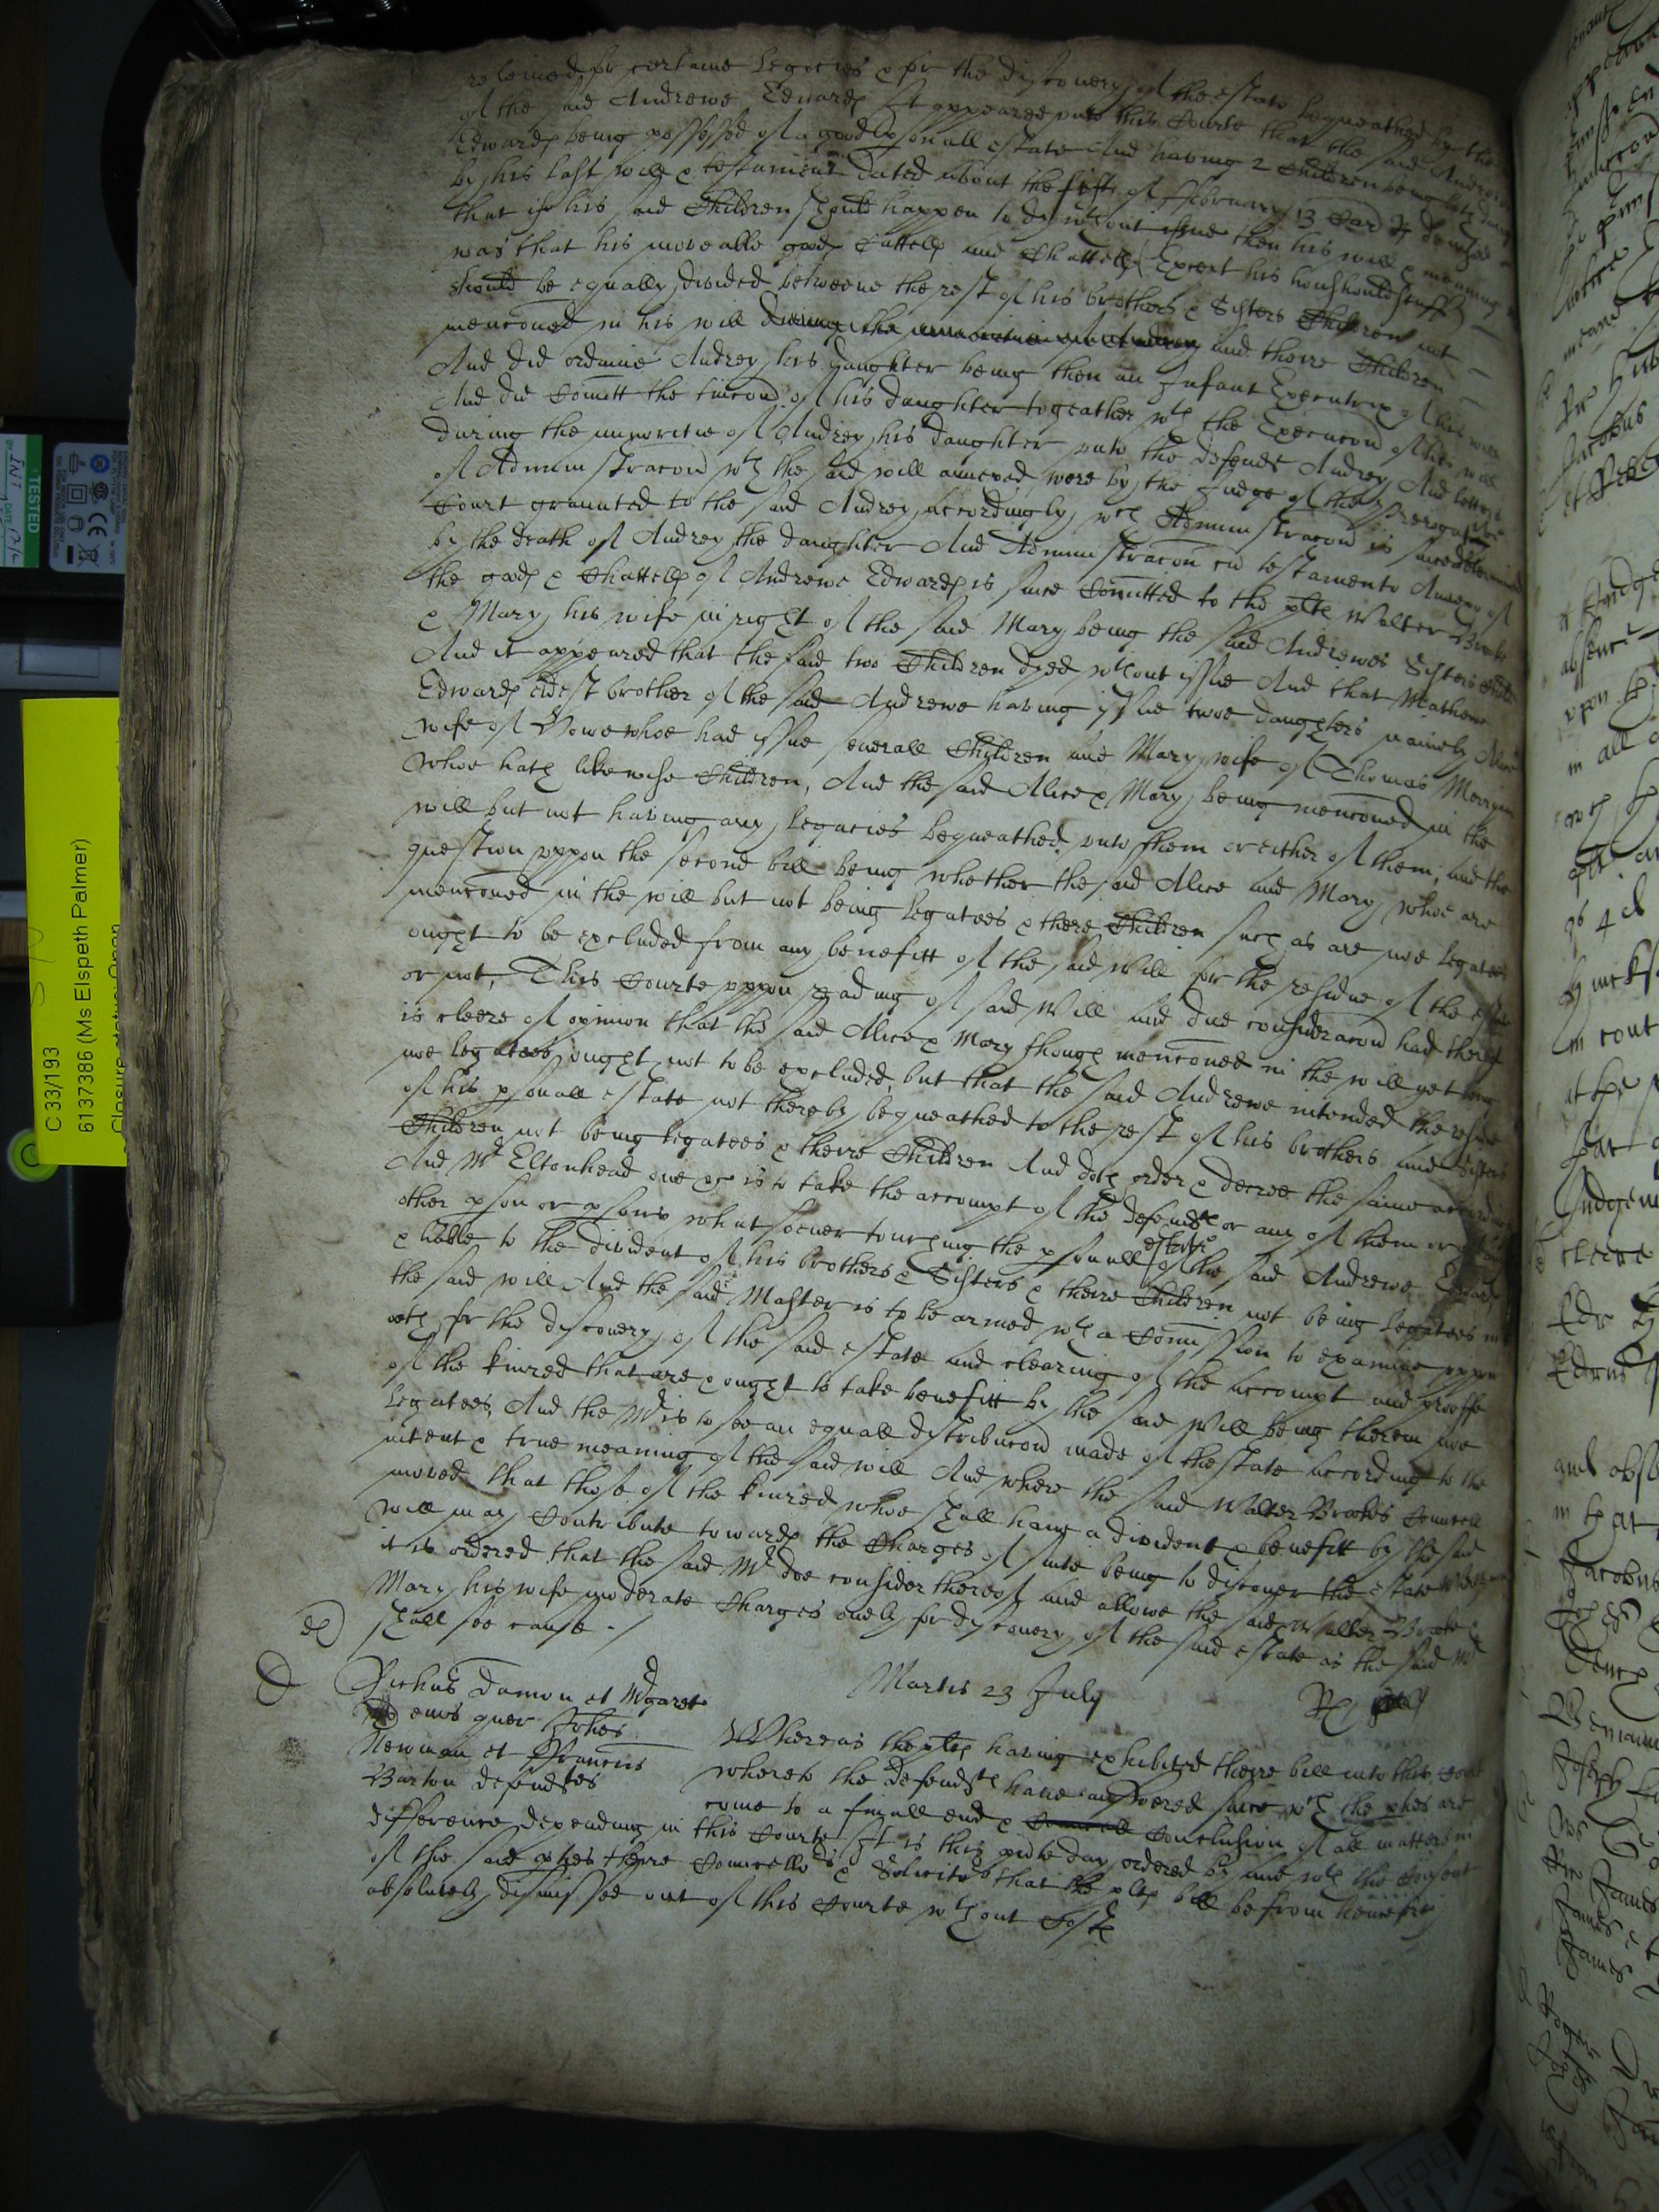 releived for certaine Legacies & for the discovery of the estate bequeathed by the
of the said Andrewe Edwards It appeared unto this Courte that the said Andrewe
Edwards being possessed of a good psonall estate And having 2 Children being both
by his last will & testament dated about the fifte of ffebruary 13 Car R devised
that if his said Children should happen to dy wthout issue then his will & meaning
was that his moveable goods Cattells and Chattells (Except his houshould stuff)
should be equally devided betweene the rest of his brothers & Sisters Children not
menconed in his will during the and theire Children
And did ordaine Audrey his daughter being then an Infant Executrix of his will
And did Comitt the tuicon of his daughter togeather wth the Execucon of his will
during the minoritie of Audrey his daughter unto the defendt Audrey And letters
of Administracon wth the said will annexed were by the Judge of the Prerogative
Court graunted to the said Audrey accordingly wch Administracon is since determined
by the death of Audrey the daughter And Administracon cu testamento Annexo of
the goods & Chattells of Andrewe Edwards is since Comitted to the plts Walter Brooke
& Mary his wife in right of the said Mary being the said Andrewes Sisters Child
And it appeared that the said two Children dyed wthout issue And that Mathewe
Edwards eldest brother of the said Andrewe having issue twoe daughters namely Alice
wife of Vowe whoe had issue severall Children and Mary wife of Thomas Merryman
whoe hath likewise Children, And the said Alice & Mary being menconed in the
will but not having any legacies bequeathed unto them or either of them, and the
question uppon the second bill being whether the said Alice and Mary whoe are
menconed in the will but not being legatees & there Children such as are noe legatees
ought to be excluded from any benefitt of the said Will for the residue of the estate
or not, This Courte uppon reading of said Will and due consideracon had thereof
is cleere of opinion that the said Alice & Mary though menconed in the will yet being
noe legatees ought not to be excluded, but that the said Andrewe intended the residue
of his psonall estate not thereby bequeathed to the rest of his brothers and Sisters
Children not being legatees & theire Children And doth order & decree the same accordingly
And Mr Eltonhead one &c is to take the accompt of the defendts or any of them or
other pson or psons whatsoever touching the psonall estate of the said Andrewe Edwards
& liable to the divident of his brothers & Sisters & theire Children not being legatees in
the said will And the said Master is to be armed wth a Comission to examine uppon
oath for the discovery of the said estate and clearing of the accompt and prooffe
of the kinred that are & ought to take benefitt by the said Will being therein noe
legatees, And the Mr is to see an equall distribucon made of the state according to the
intent & true meaning of the said will And where the said Walter Brookes Councell
moved that those of the kinred whoe shall have a divident & benefitt by the said
will may Contribute towards the Charges of suite being to discover the estate
it is ordered that the said Mr doe consider thereof and allowe the said Walter Brooke &
Mary his wife moderate Charges onely for discovery of the said estate as the said Mr
shall see cause ./
Martis 23 July
Richus Damon et Mgaret
eius quer Johes
Newman et Franciis
Barton defendtes
Whereas the plts having exhibited theire bill into this Court
whereto the defendts have answered since wch the pties are
come to a finall end & Conclusion of all matters in
difference depending in this Courte It is this psente day ordered by and wth the Consent
of the said pties theire Councello's & Solicito's that the plts bill be from henceforth
absolutely dismissed out of this Courte wthout Costs
C 33/193
6137386 (Ms Elspeth Palmer)
TESTED